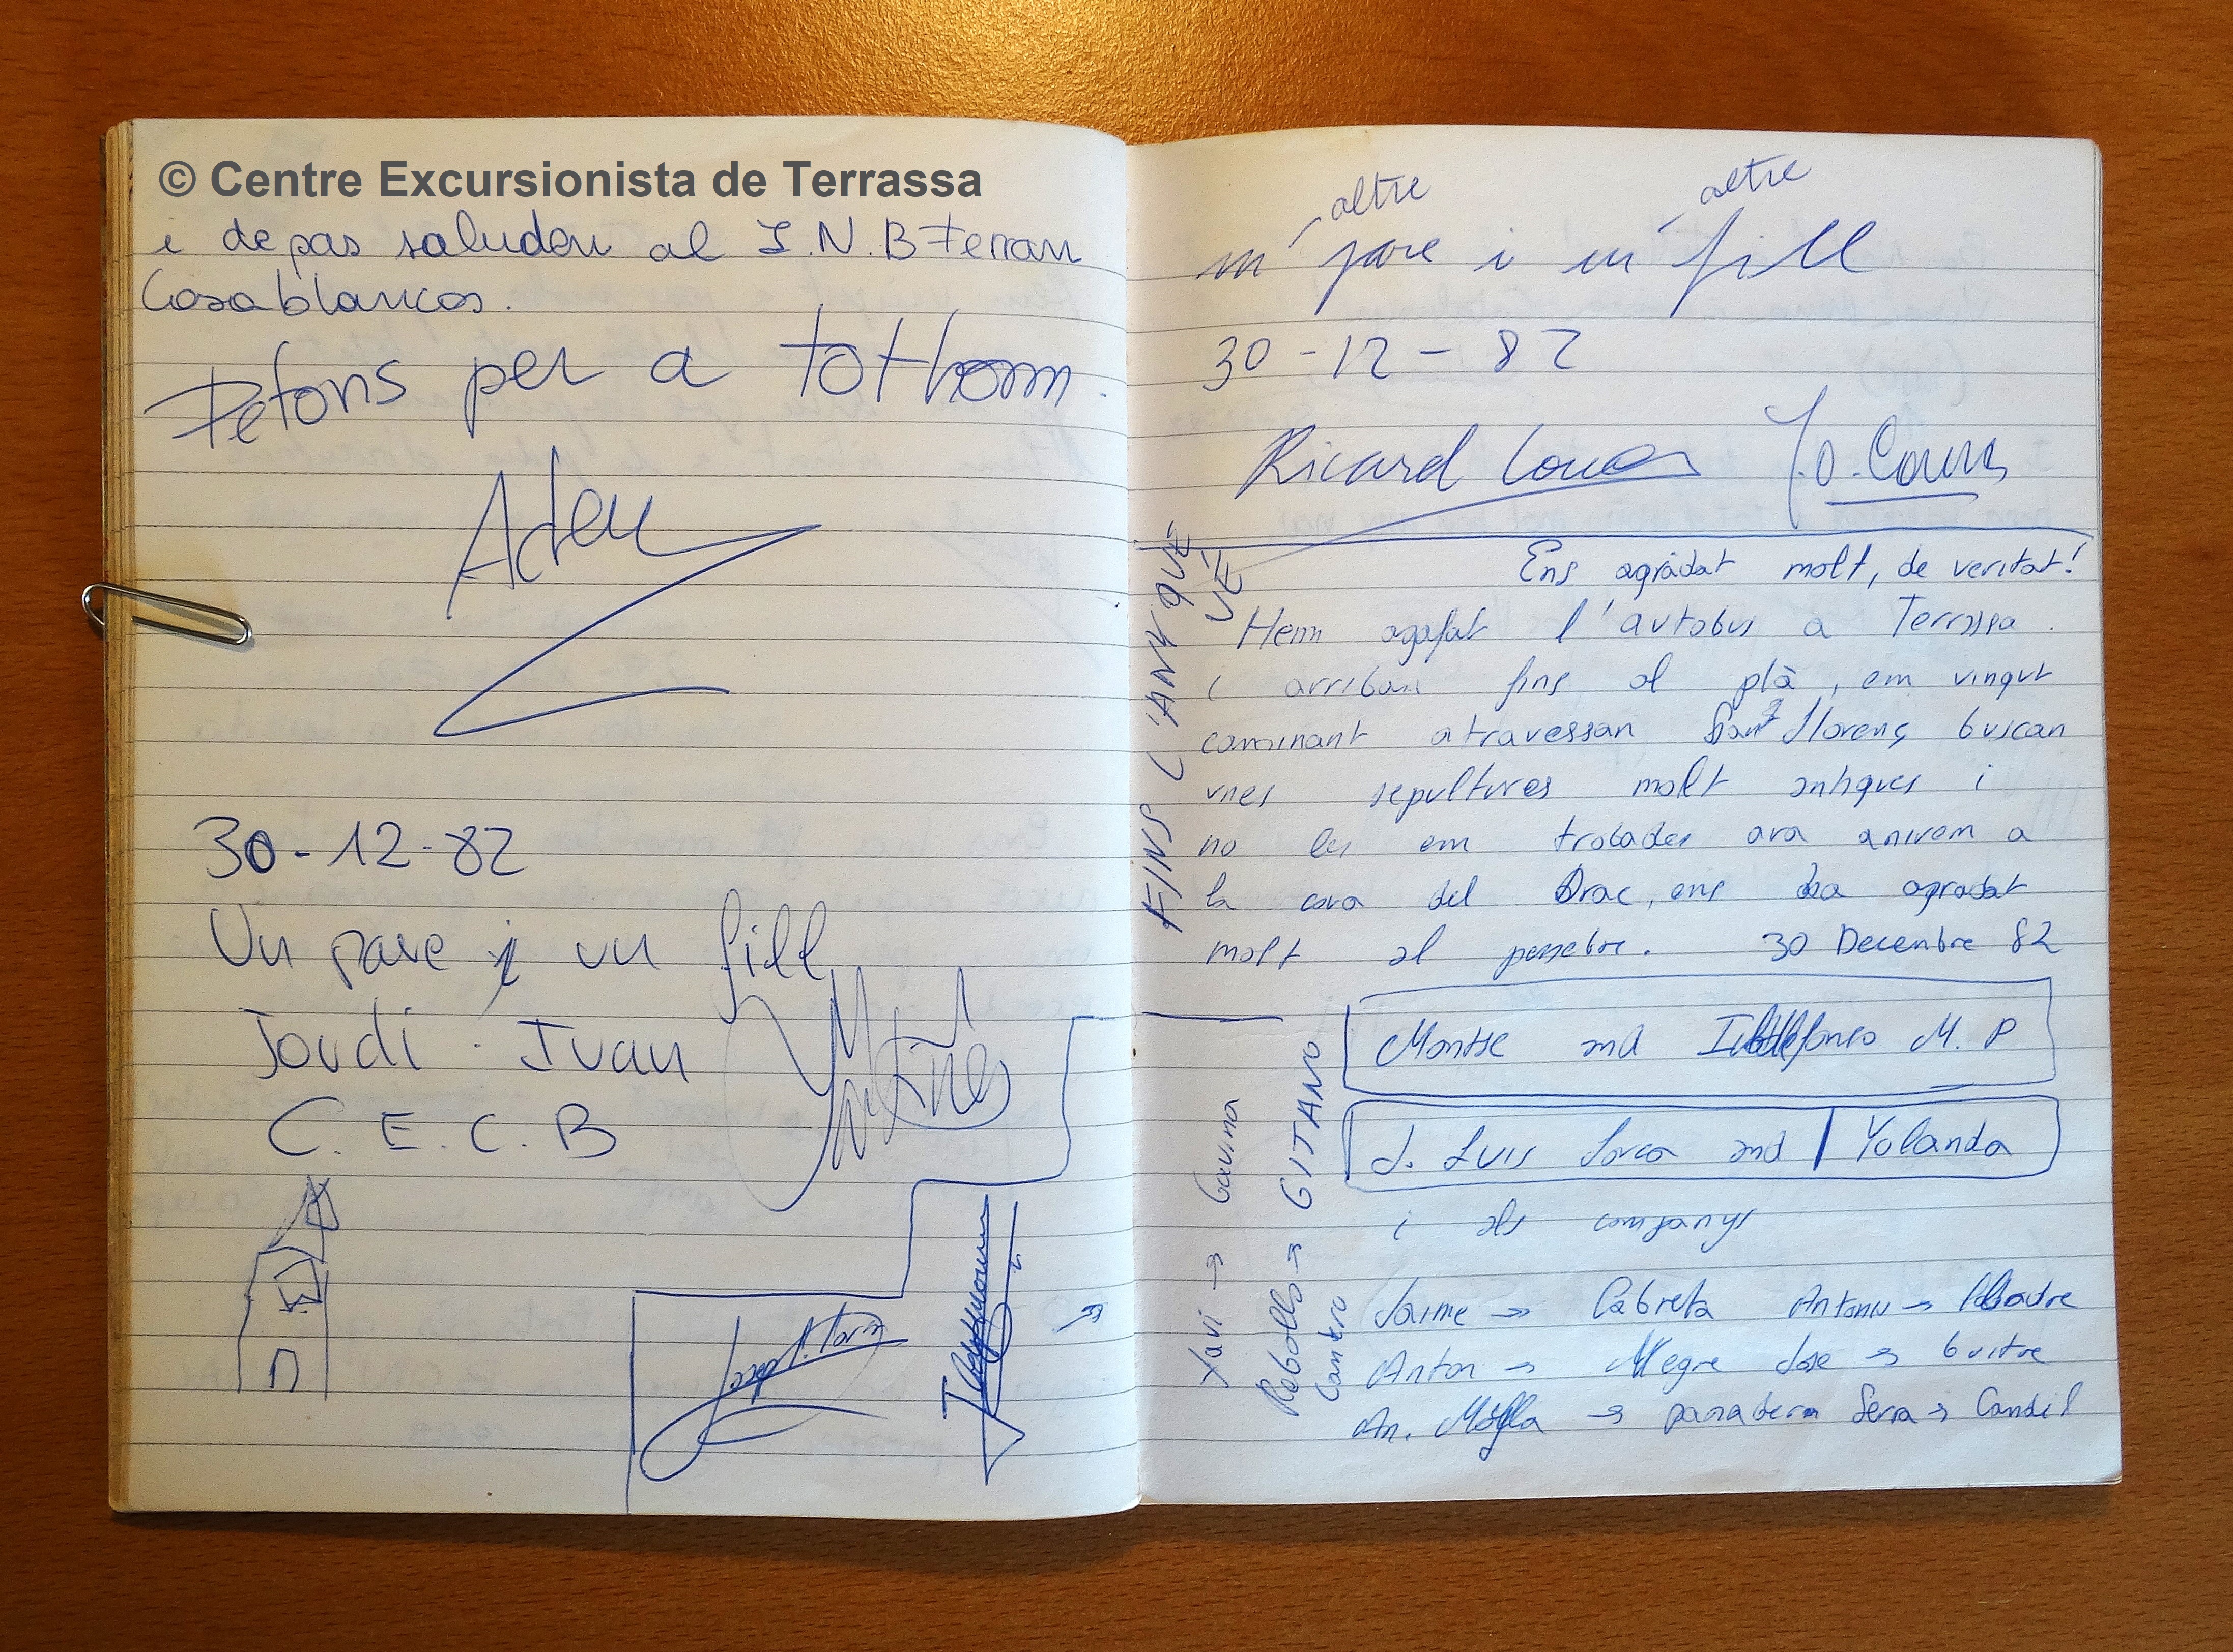 © Centre Excursionista de Terrassa
i de pas saluden al I.N.B Ferran
Casablancas.
Petons per a tothom.
Adeu
30-12-82
Un pare i un fill
Jordi · Juan
C. E. C. B
altre altre
un pare i un fill
30-12-82
Ricard
Ens agradat molt, de veritat!
Hem agafat l'autobus a Terrassa.
i arriban fins al plà, em vingut
caminant atravessan Sant Llorenç buscan
unes sepultures molt antigues i
no les em trobades ara anirem a
la cova del Drac, ens ha agradat
molt al pessebre. 30 Decembre 82
FINS L'ANY QUE
VÉ
Montse and Ildefonso M. P
J. Luis Lorca and Yolanda
i als companys
Jaime → Cabreta Antonio →
Anton → Alegre Jose → buitre
An. Molla → panadera Serra → Candil
Xavi → Gavina
Rebollo → GITANO